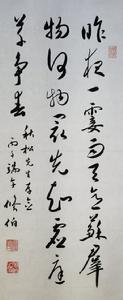 昨夜一霎雨天意蘇群
物何物最先知虛庭
草爭出
秋松先生存念
丙子端午 脩伯